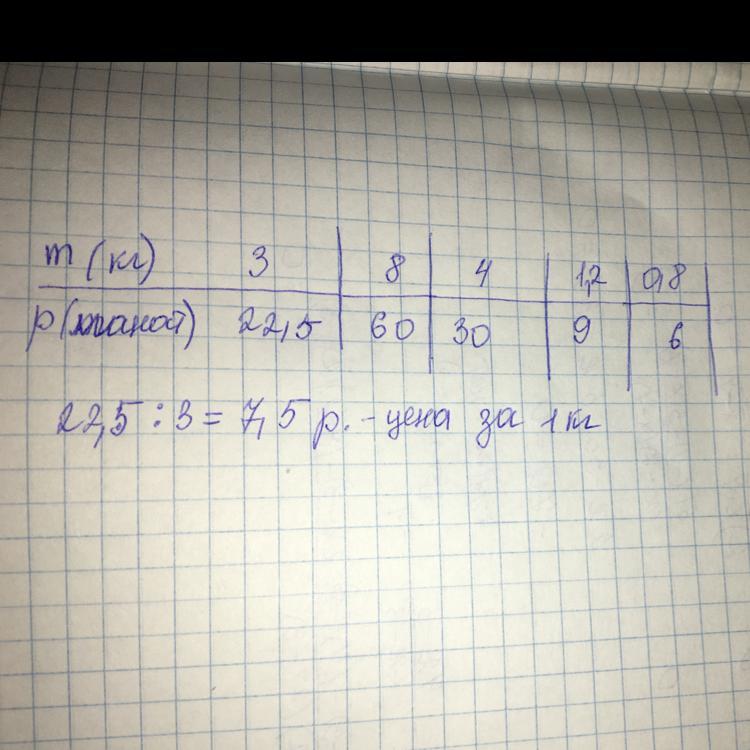 m (кг) 3 8 4 1,2 0,8
p (манат) 22,5 60 30 9 6
22,5 : 3 = 7,5 р. - цена за 1 кг